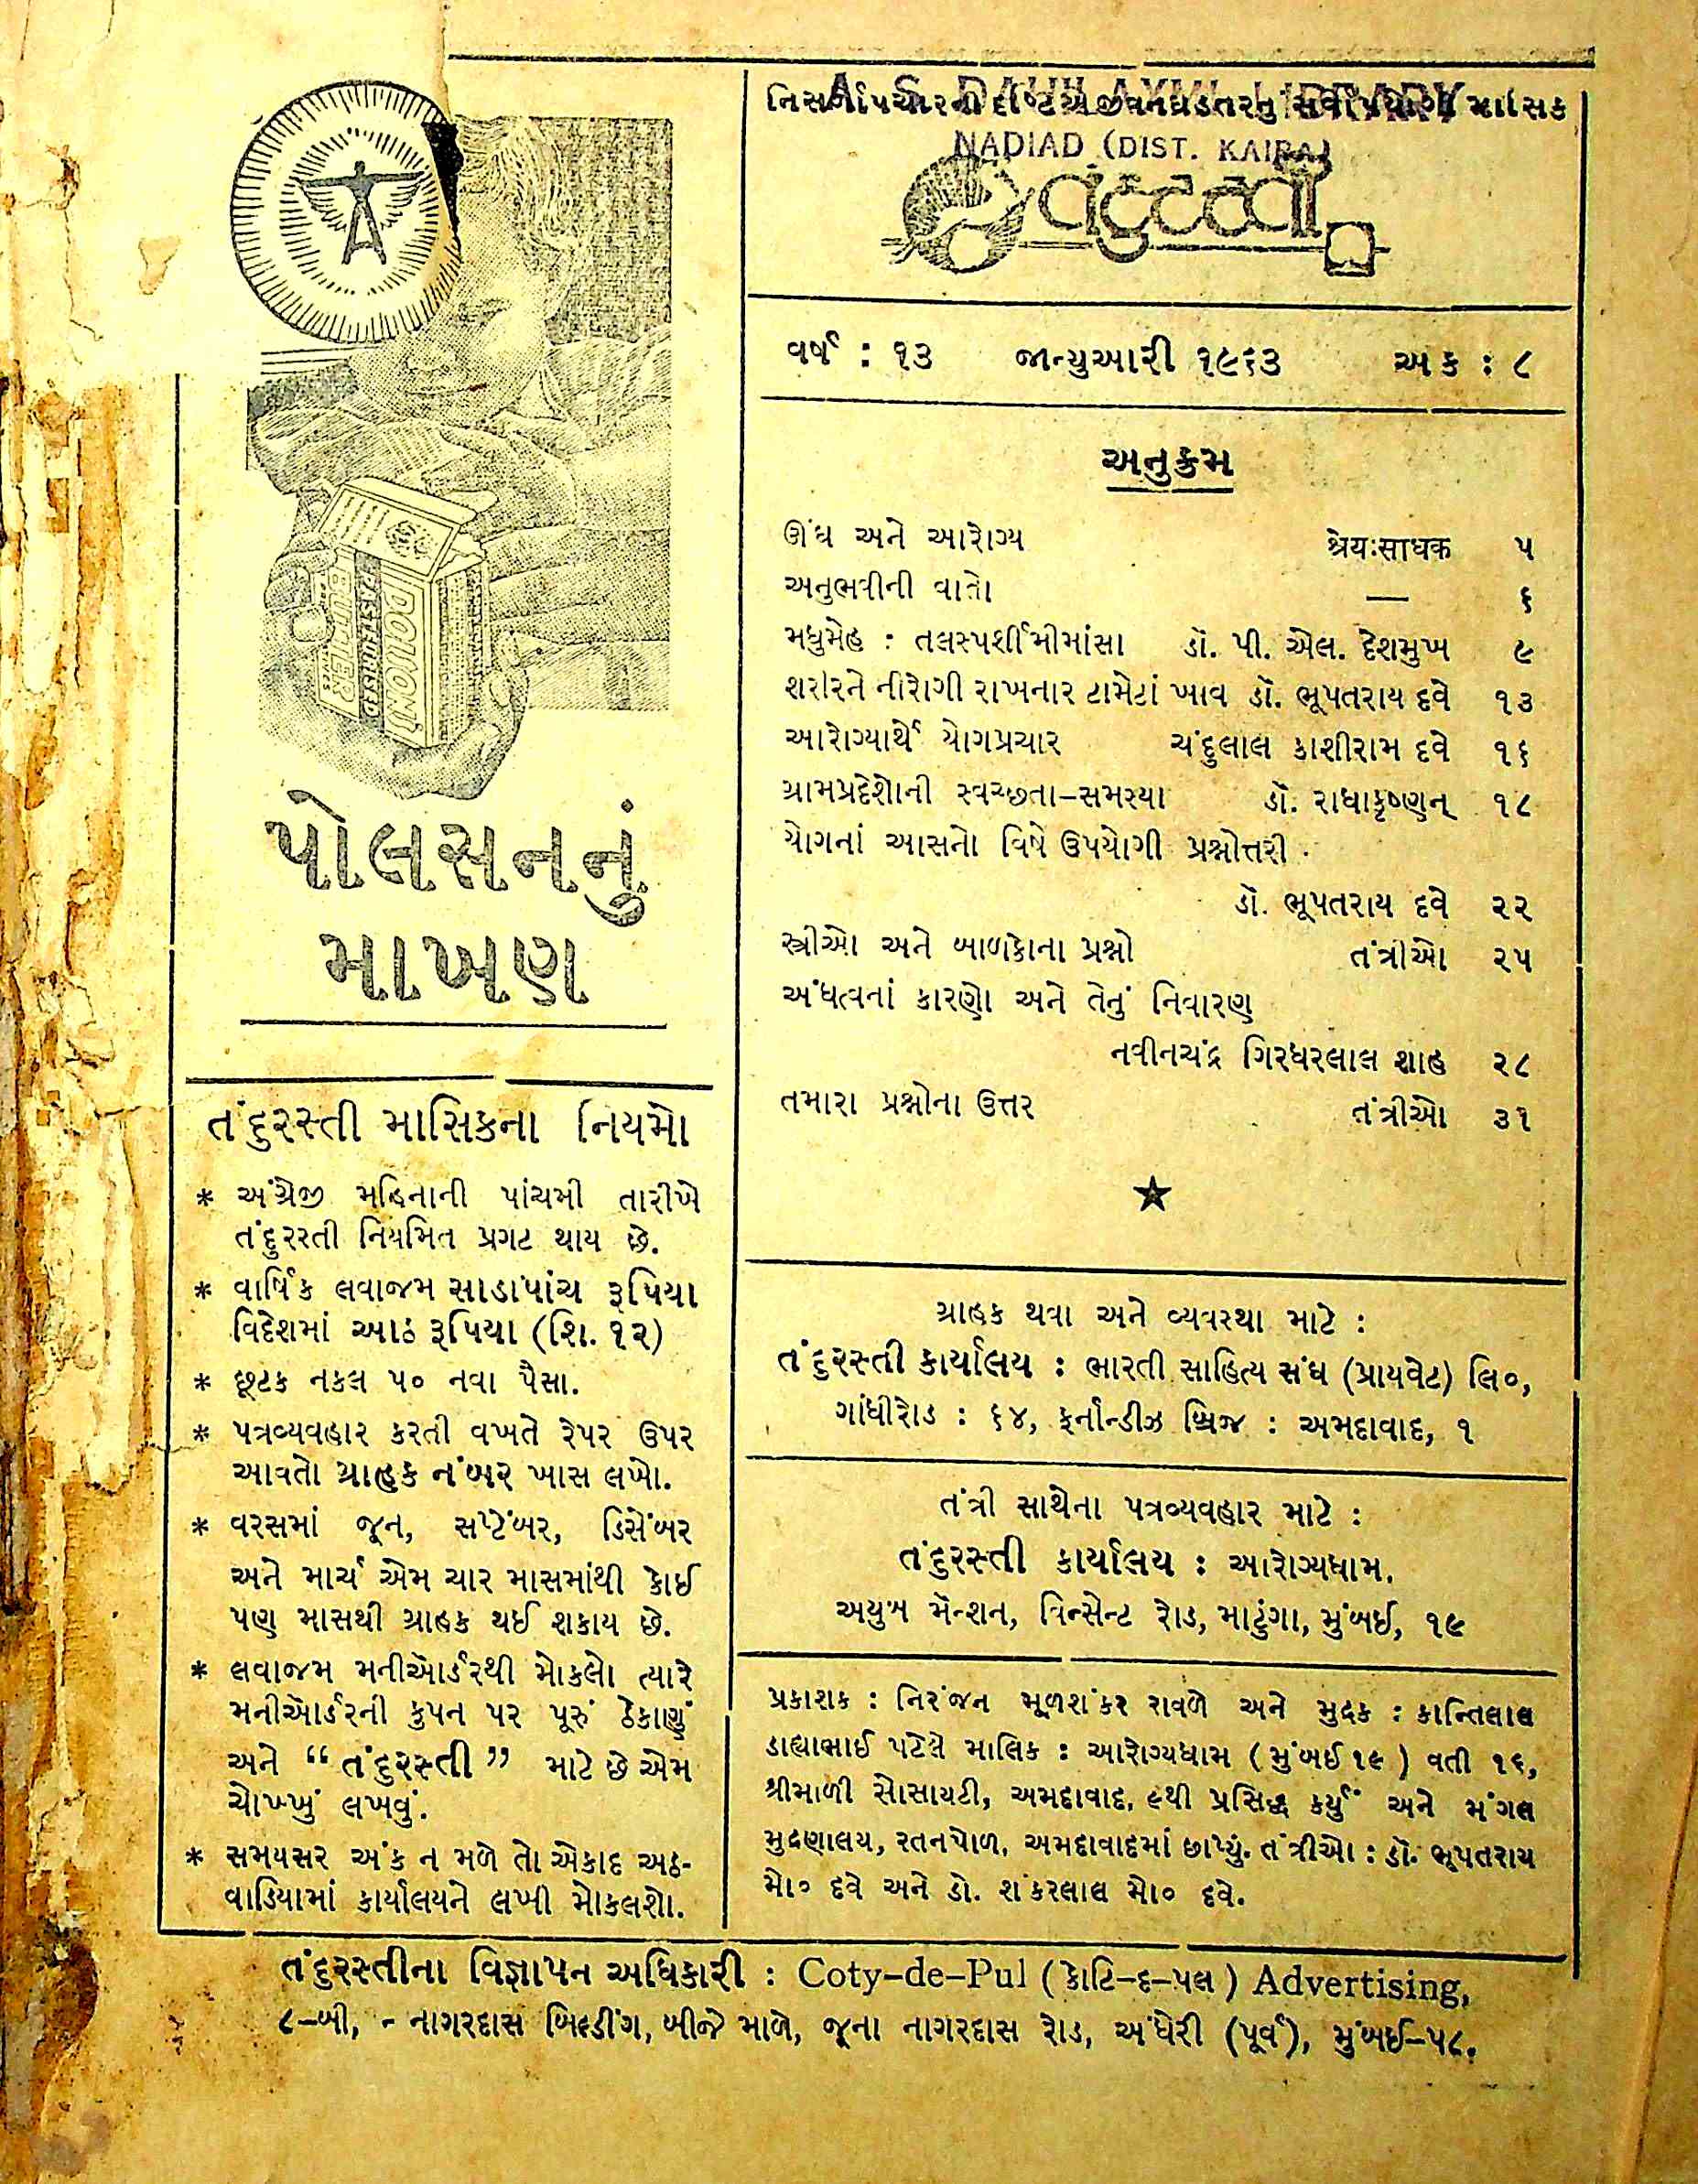 નિસર્ગોપચારની દૃષ્ટિએ જીવનઘડતરનું સર્વોપયોગી માસિક
LIBRARY
NADIAD (DIST. KAIRA)
તંદુરસ્તી
વર્ષ : ૧૩ જાન્યુઆરી ૧૯૬૩ અંક : ૮
અનુક્રમ
ઊંઘ અને આરોગ્ય श्रेयःसाधक ૫
અનુભવીની વાતો — ૬
મધુમેહ : તલસ્પર્શી મીમાંસા ડૉ. પી. એલ. દેશમુખ ૯
શરીરને નીરોગી રાખનાર ટામેટાં ખાવ ડૉ. ભૂપતરાય દવે ૧૩
આરોગ્યાર્થે યોગપ્રચાર ચંદુલાલ કાશીરામ દવે ૧૬
ગ્રામપ્રદેશોની સ્વચ્છતા-સમસ્યા ડૉ. રાધાકૃષ્ણન્ ૧૮
યોગનાં આસનો વિષે ઉપયોગી પ્રશ્નોત્તરી
ડૉ. ભૂપતરાય દવે ૨૨
સ્ત્રીઓ અને બાળકોના પ્રશ્નો તંત્રીઓ ૨૫
અંધત્વનાં કારણો અને તેનું નિવારણ
નવીનચંદ્ર ગિરધરલાલ શાહ ૨૮
તમારા પ્રશ્નોના ઉત્તર તંત્રીઓ ૩૧
ગ્રાહક થવા અને વ્યવસ્થા માટે :
તંદુરસ્તી કાર્યાલય : ભારતી સાહિત્ય સંઘ (પ્રાયવેટ) લિ૦,
ગાંધીરોડ : ૬૪, ફર્નાન્ડીઝ બ્રિજ : અમદાવાદ, ૧
તંત્રી સાથેના પત્રવ્યવહાર માટે :
તંદુરસ્તી કાર્યાલય : આરોગ્યધામ,
અયુબ મૅન્શન, વિન્સેન્ટ રોડ, માટુંગા, મુંબઈ, ૧૯
પ્રકાશક : નિરંજન મૂળશંકર રાવળે અને મુદ્રક : કાન્તિલાલ
ડાહ્યાભાઈ પટેલે માલિક : આરોગ્યધામ (મુંબઈ ૧૯) વતી ૧૬,
શ્રીમાળી સોસાયટી, અમદાવાદ, ૯થી પ્રસિદ્ધ કર્યું અને મંગલ
મુદ્રણાલય, રતનપોળ, અમદાવાદમાં છાપ્યું. તંત્રીઓ : ડૉ. ભૂપતરાય
મો૦ દવે અને ડૉ. શંકરલાલ મો૦ દવે.
POLSON'S
PASTEURISED
BUTTER
પોલસનનું
માખણ
તંદુરસ્તી માસિકના નિયમો
* અંગ્રેજી મહિનાની પાંચમી તારીખે
તંદુરસ્તી નિયમિત પ્રગટ થાય છે.
* વાર્ષિક લવાજમ સાડાપાંચ રૂપિયા
વિદેશમાં આઠ રૂપિયા (શિ. ૧૨)
* છૂટક નકલ ૫૦ નવા પૈસા.
* પત્રવ્યવહાર કરતી વખતે રેપર ઉપર
આવતો ગ્રાહક નંબર ખાસ લખો.
* વરસમાં જૂન, સપ્ટેંબર, ડિસેંબર
અને માર્ચ એમ ચાર માસમાંથી કોઈ
પણ માસથી ગ્રાહક થઈ શકાય છે.
* લવાજમ મનીઑર્ડરથી મોકલો ત્યારે
મનીઑર્ડરની કુપન પર પૂરું ઠેકાણું
અને “તંદુરસ્તી” માટે છે એમ
ચોખ્ખું લખવું.
* સમયસર અંક ન મળે તો એકાદ અઠ-
વાડિયામાં કાર્યાલયને લખી મોકલશો.
તંદુરસ્તીના વિજ્ઞાપન અધિકારી : Coty-de-Pul (કોટિ-દ-પલ) Advertising,
૮-બી, - નાગરદાસ બિલ્ડીંગ, બીજે માળે, જૂના નાગરદાસ રોડ, અંધેરી (પૂર્વ), મુંબઈ-૫૮.